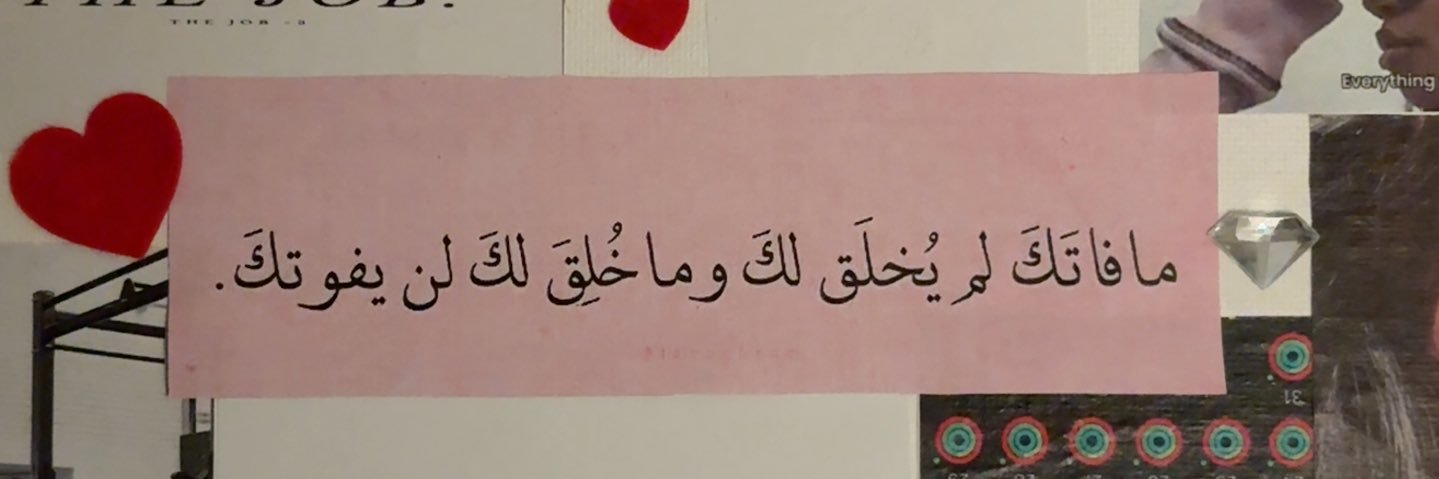 THE JOB.
THE JOB -a
Everything
ما فاتَكَ لم يُخلَق لكَ وما خُلِقَ لكَ لن يفوتكَ.
31